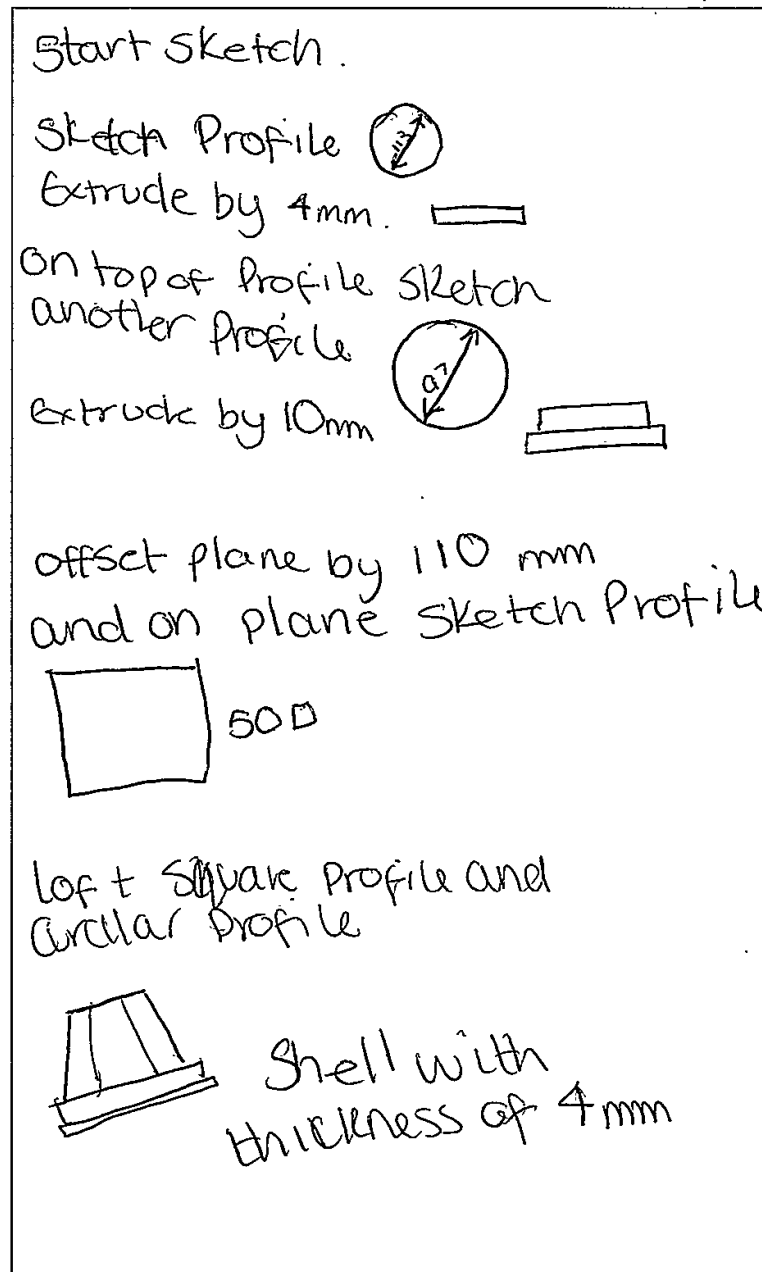 Start Sketch.
Sketch Profile
Extrude by 4mm.
On top of Profile Sketch
another Profile
97
extrude by 10mm
offset plane by 110 mm
and on plane Sketch Profile
50 □
loft Square Profile and
Circular Profile
Shell with
thickness of 4mm